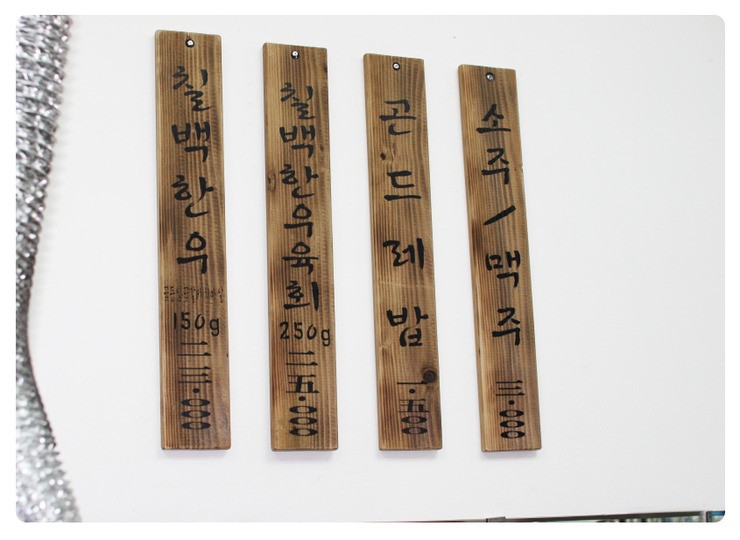 칠백한우
150g
二三·000
칠백한우육회
250g
二五·000
곤드레밥
一·五00
소주/맥주
三·000